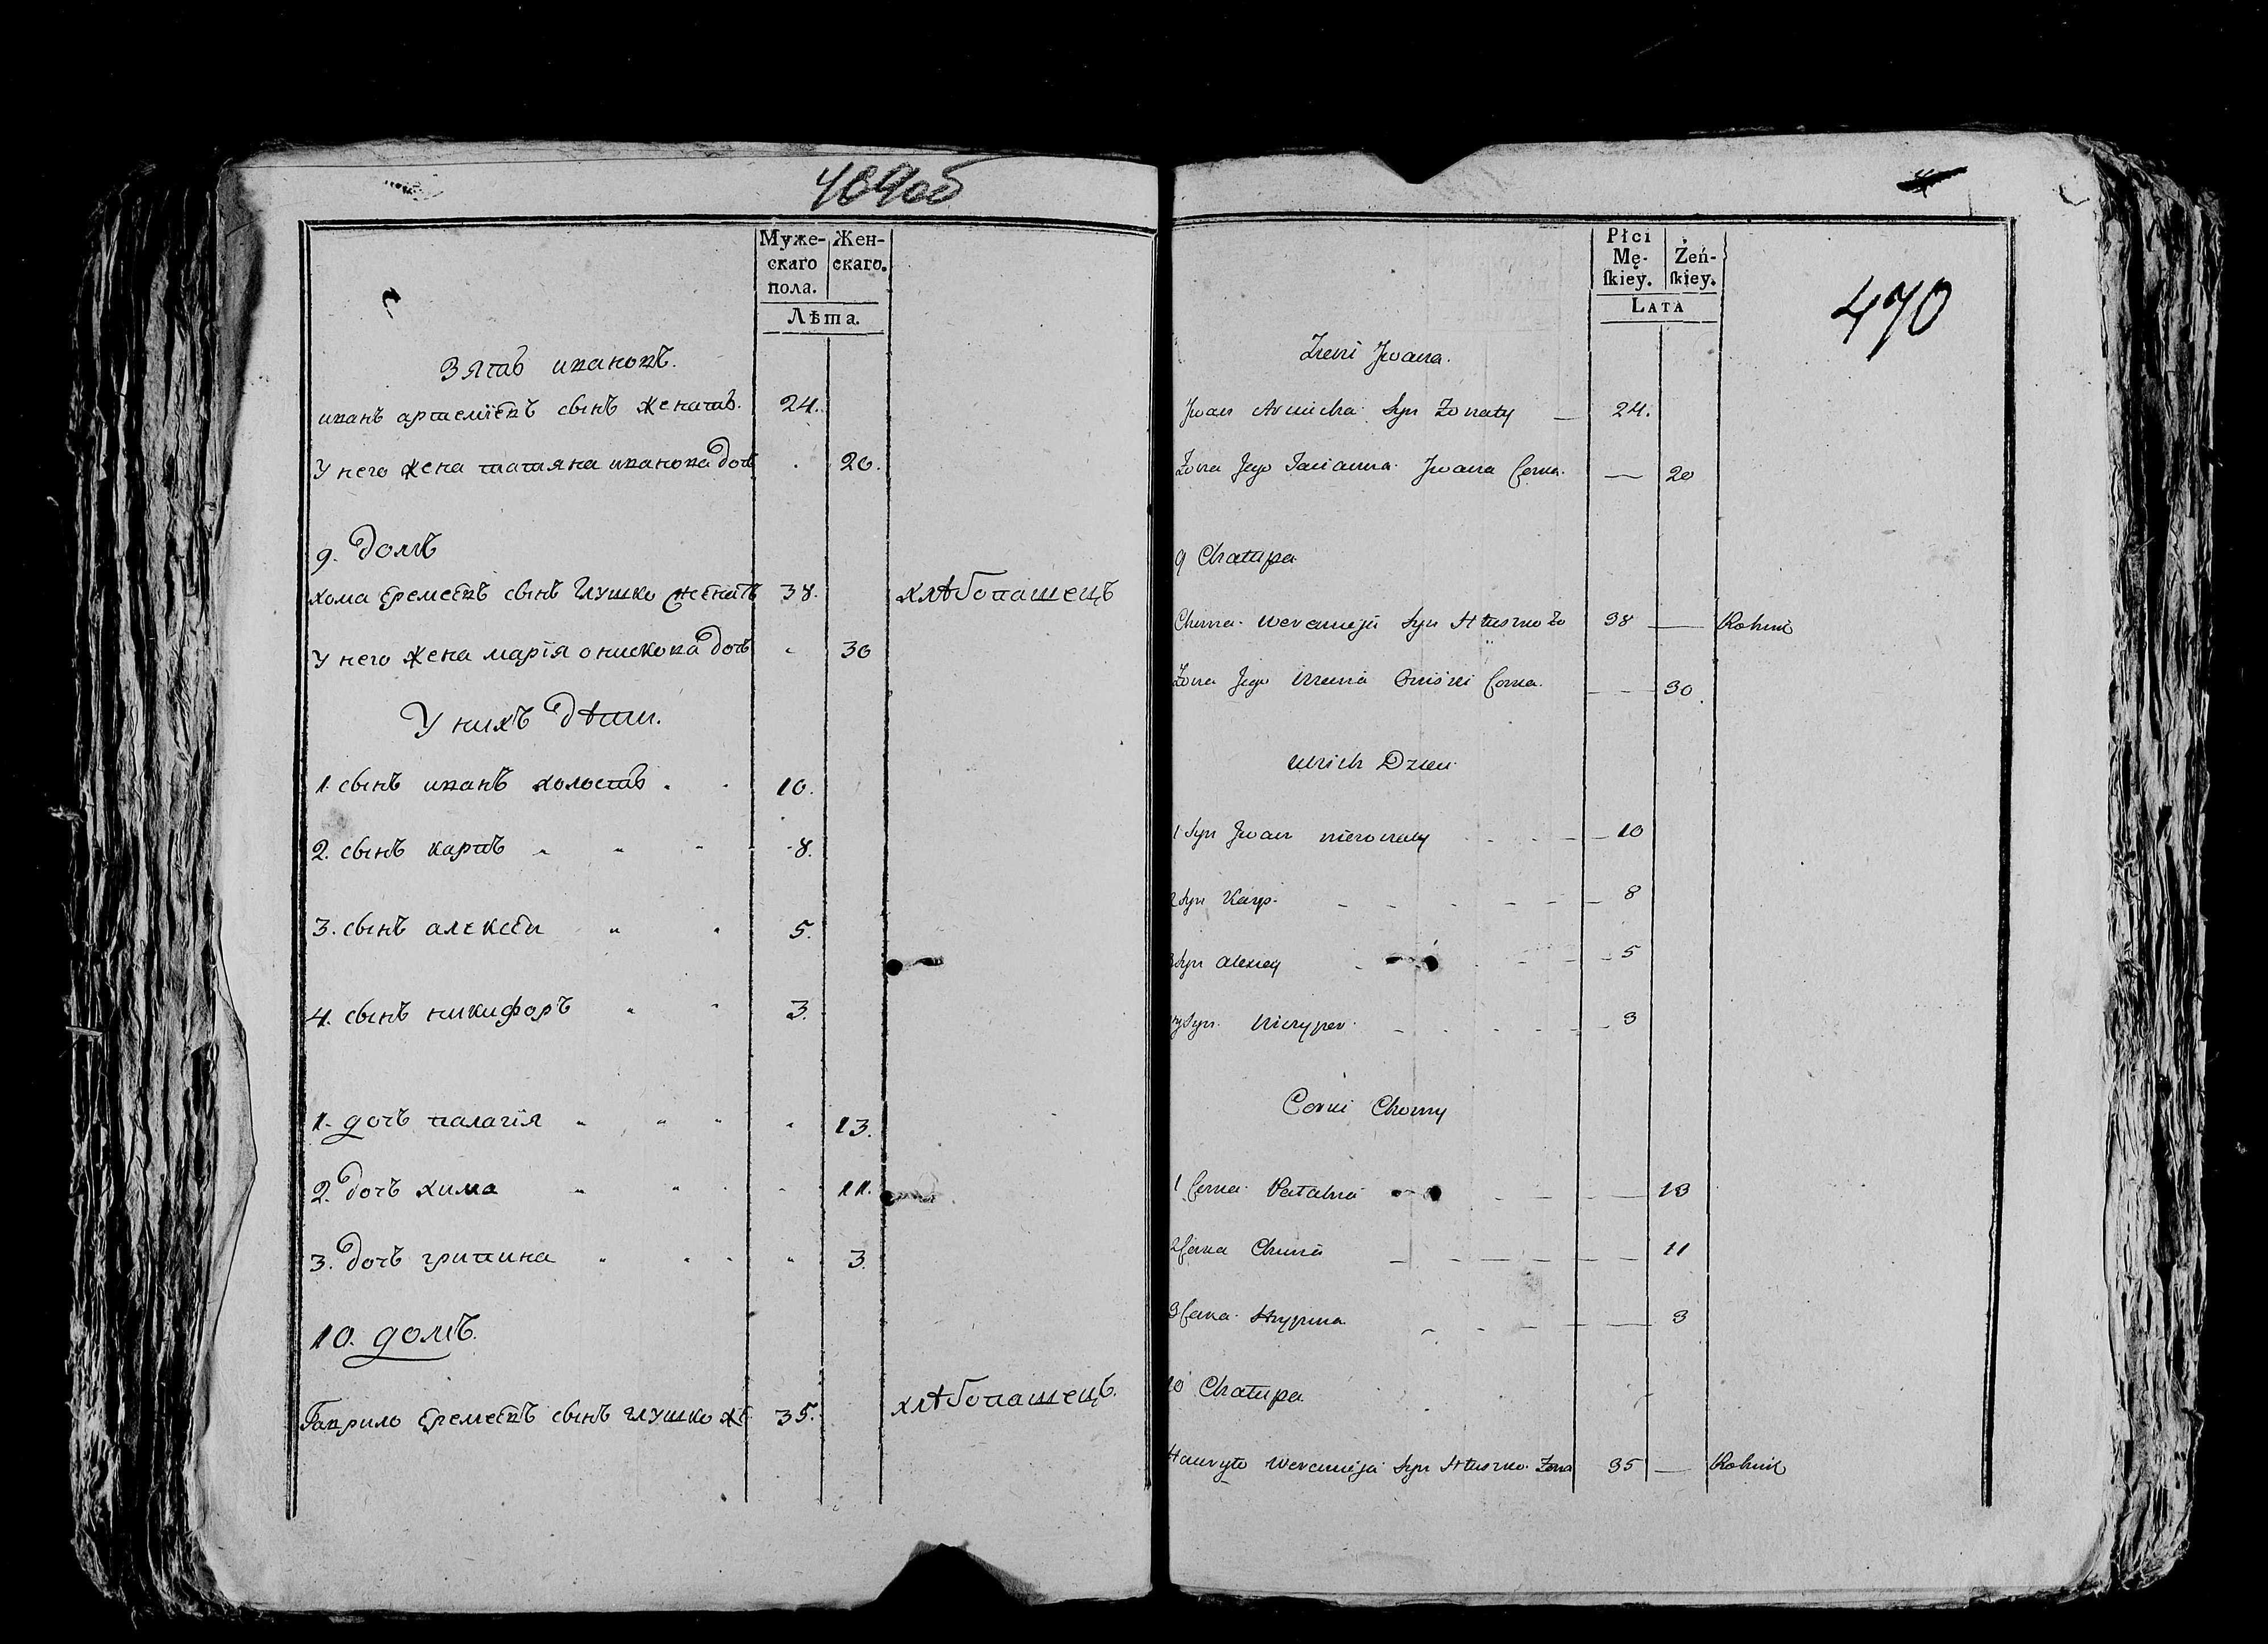 469об
Муже-
скаго
пола.
Жен-
скаго.
Лѣта.
Зять ивановъ.
иванъ артемѣевъ сынъ женатъ. 24.
У него жена татяна иванова дочь 20.
9. домъ
хома еремеевъ сынъ глушко женатъ 38. хлѣбопашецъ
У него жена марія онискова дочь 30
У нихъ дѣти.
1 сынъ иванъ холостъ 10.
2. сынъ карпъ 8.
3. сынъ алексей 5.
4. сынъ никифоръ 3.
1. дочь палагія 13.
2. дочь хима 11.
3. дочь грипина 3.
10. домъ.
Гаврило еремеевъ сынъ глушко же 35. хлѣбопашецъ.
470
Płci
Mę-
ſkiey.
Żeń-
ſkiey.
LATA
Iwana.
Iwan Syn Zonaty 24.
Zona Jego Tacianna Iwana Corka 20
9 Chałupa
Choma Weremieja Syn Hłuszko Zo 38 Rolnik
Zona Jego Maria Oniski Corka 30
Ulrich Dzieci
1 Syn Iwan niezonaty 10
2 Syn Karp 8
3 Syn Alexiey 5
4 Syn Nicyper 3
Corki Chomy
1 Corka Pałahia 13
2 Corka Chima 11
3 Corka Hrypina 3
10 Chałupa
Hawryło Weremieja Syn Hłuszko Zona 35 Rolnik